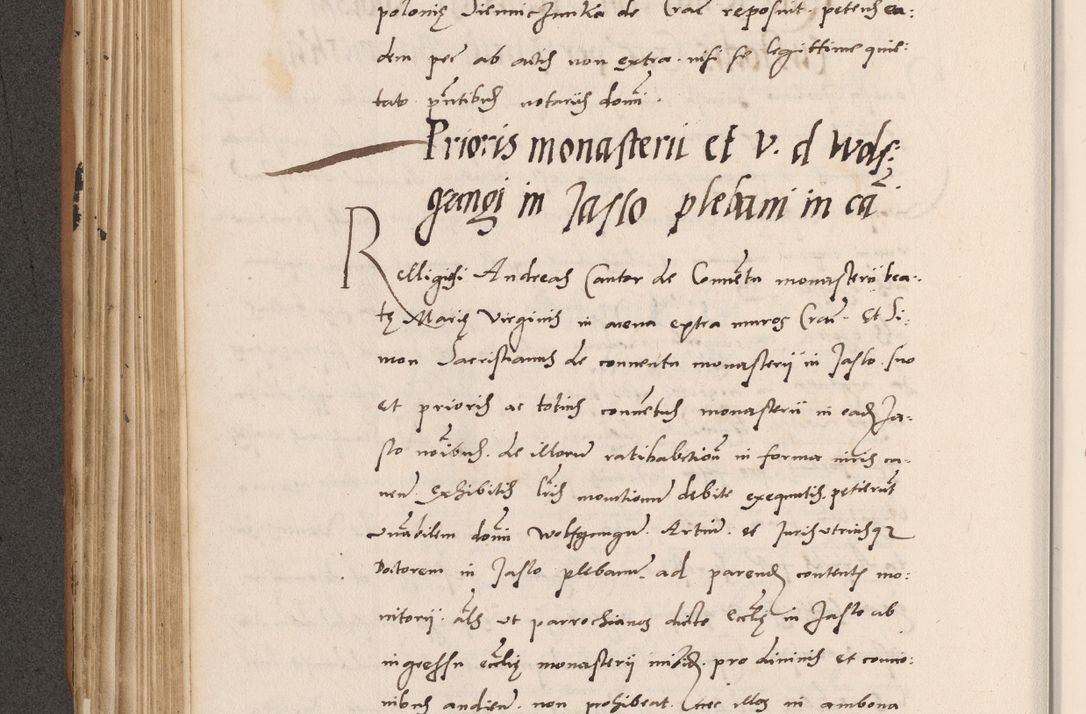 polonię Viennic Jmika de Crac reposuit petens ea:
dem per ab actis non extra nisi se legittime quie:
tato pntibus notariis domi.
Prioris monasterii et v. d Wols:
gangi in Jaslo plebani in cā
Relligiosi Andreas Cantor de Conventu monasterii bea:
tę Marię Virginis in arena extra muros Crac. Et Si:
mon Sacristianus de conventu monasterii in Jaslo suo
et prioris ac totius conventus monasterii in eadē Ja:
slo noibus. de illorum ratihabitione in forma iuris ca:
nen. Exhibitis lris monitionum debite exequutis. petierunt
venabilem domī Wolfgangum. Artium. et Juris utriusq
Doctorem in Jaslo plebanum ad parendū contentis mo:
nitorii. als ut parrochianos dicte Ecclię in Jaslo ab
ingressu ecclię monasterii inibi. pro divinis et concio:
nibus audien. non prohibeat. nec illos in ambona